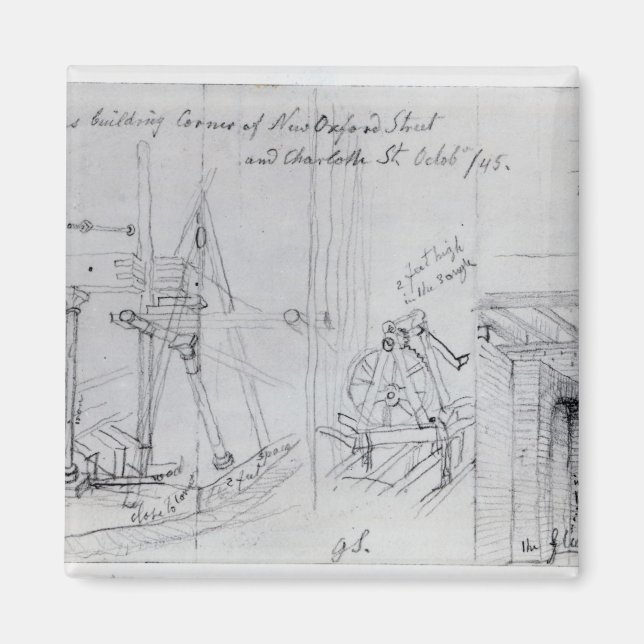 s building Corner of New Oxford Street
and Charlotte St. Octobr/45.
2 feet high
in the
iron
wood
close to
2 feet space
G S.
the